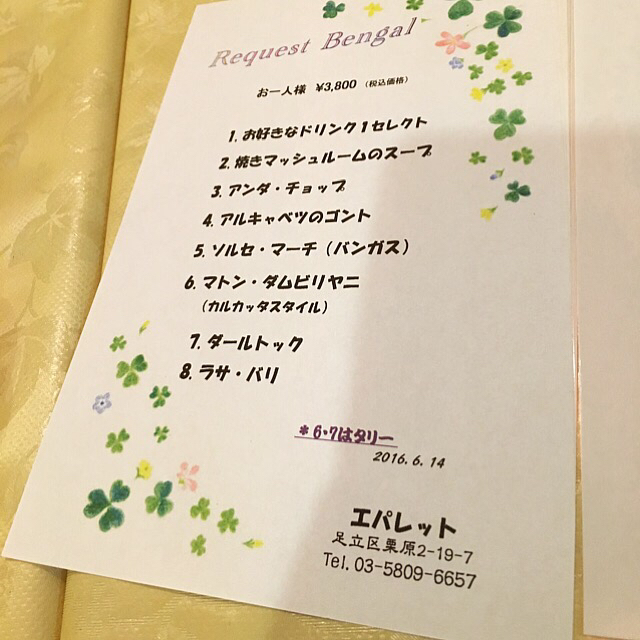 Request Bengal
お一人様 ¥3,800 (税込価格)
1. お好きなドリンク1セレクト
2. 焼きマッシュルームのスープ
3. アンダ・チョップ
4. アルキャベツのゴント
5. ソルセ・マーチ (バンガス)
6. マトン・ダムビリヤニ
(カルカッタスタイル)
7. ダールトック
8. ラサ・バリ
*6・7はタリー
2016. 6. 14
エパレット
足立区栗原2-19-7
Tel. 03-5809-6657